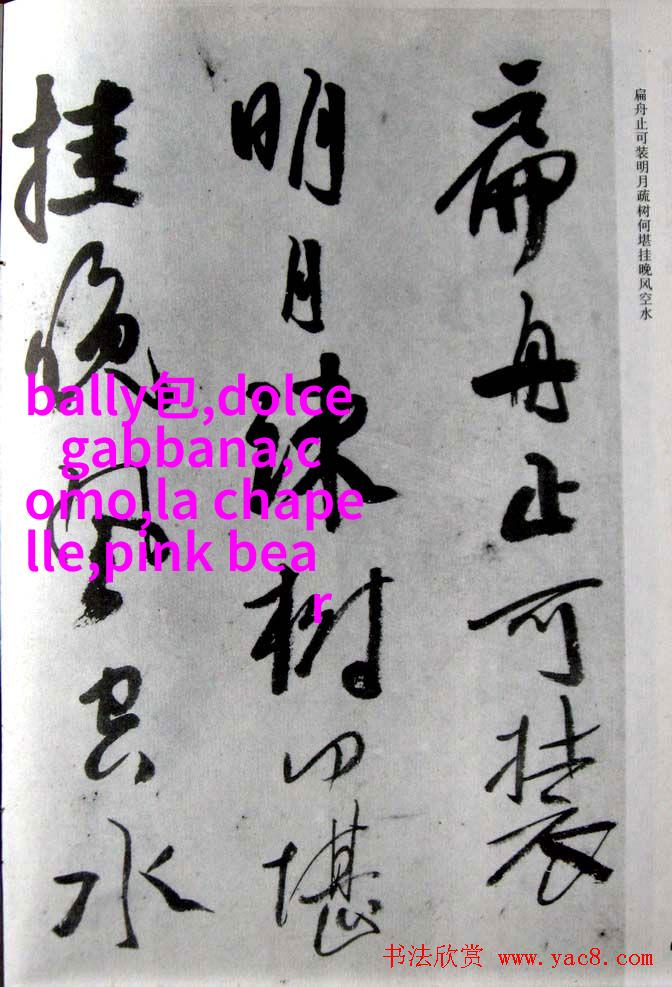 扁舟止可装
明月疏树何堪
挂晚风空水
扁舟止可装明月疏树何堪挂晚风空水
bally包,dolce
gabbana,c
omo,la chape
lle,pink bea
r
书法欣赏 www.yac8.com